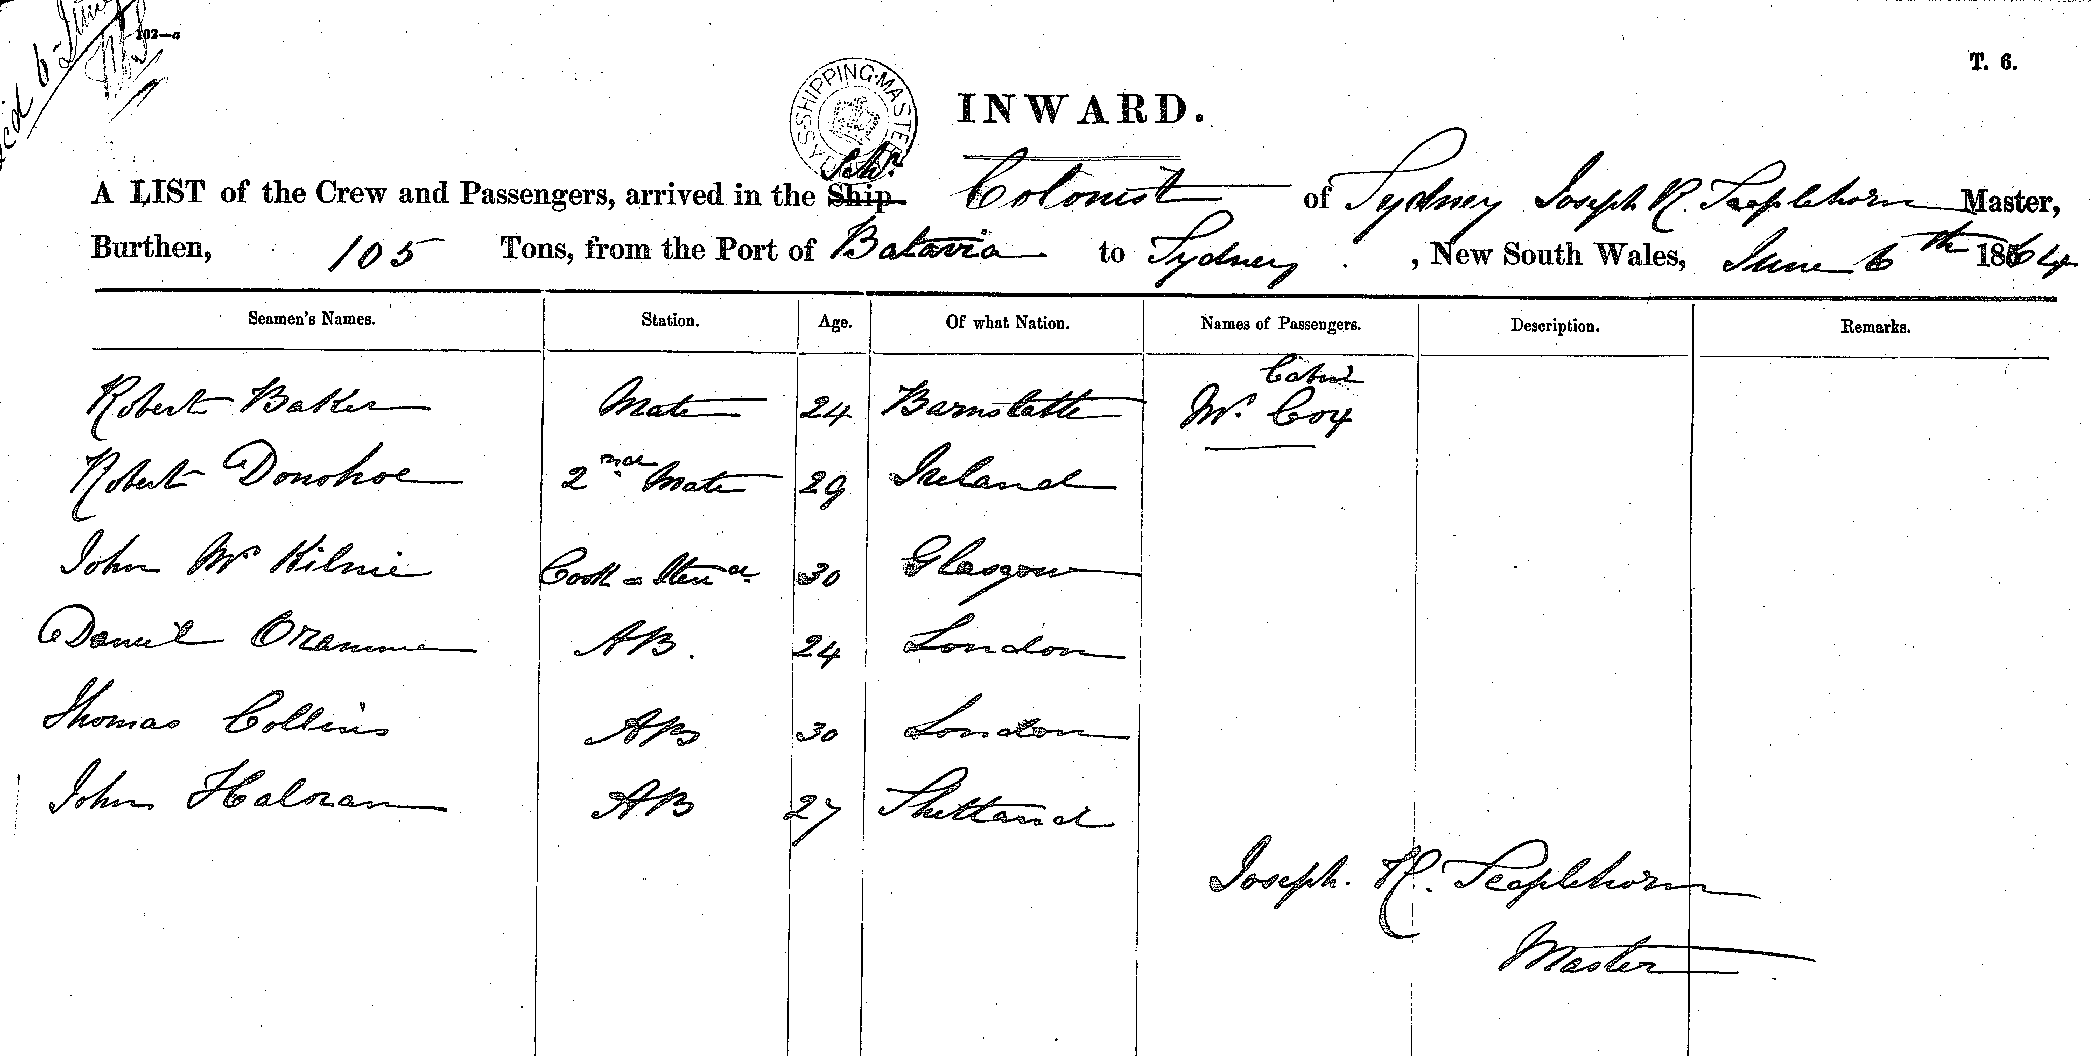 102—a
T. 6.
SHIPPING MASTE
INWARD.
Schr.
A LIST of the Crew and Passengers, arrived in the Ship Colonist of Sydney Joseph R. Seaplehorn Master,
Burthen, 105 Tons, from the Port of Batavia to Sydney , New South Wales, June 6th 1864
Seamen's Names. Station. Age. Of what Nation. Names of Passengers. Description. Remarks.
Cabin
Robert Baker Mate 24 Barnstable Mr. Cox
Robert Donohoe 2nd Mate 29 Ireland
John Mc Kilnie Cook = Stewd. 30 Glasgow
Daniel AB. 24 London
Thomas Collins AB 30 London
John Haloran AB 27 Shetland
Joseph. R. Seaplehorn
Master